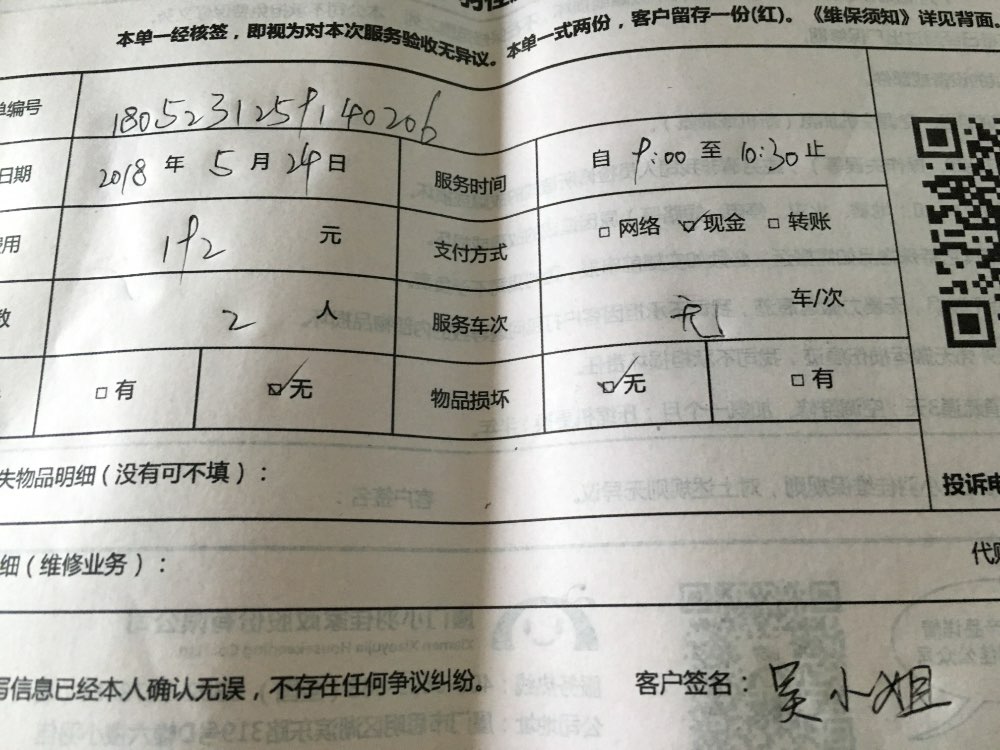 本单一经核签，即视为对本次服务验收无异议。本单一式两份，客户留存一份(红)。《维保须知》详见背面。
单编号 1805231259140206
日期 2018 年 5 月 24 日 服务时间 自 9:00 至 10:30 止
费用 192 元 支付方式 □ 网络 ☑ 现金 □ 转账
数 2 人 服务车次 无 车/次
□ 有 ☑ 无 物品损坏 ☑ 无 □ 有
失物品明细（没有可不填）：
投诉电
细（维修业务）：
代购
写信息已经本人确认无误，不存在任何争议纠纷。 客户签名：吴小姐